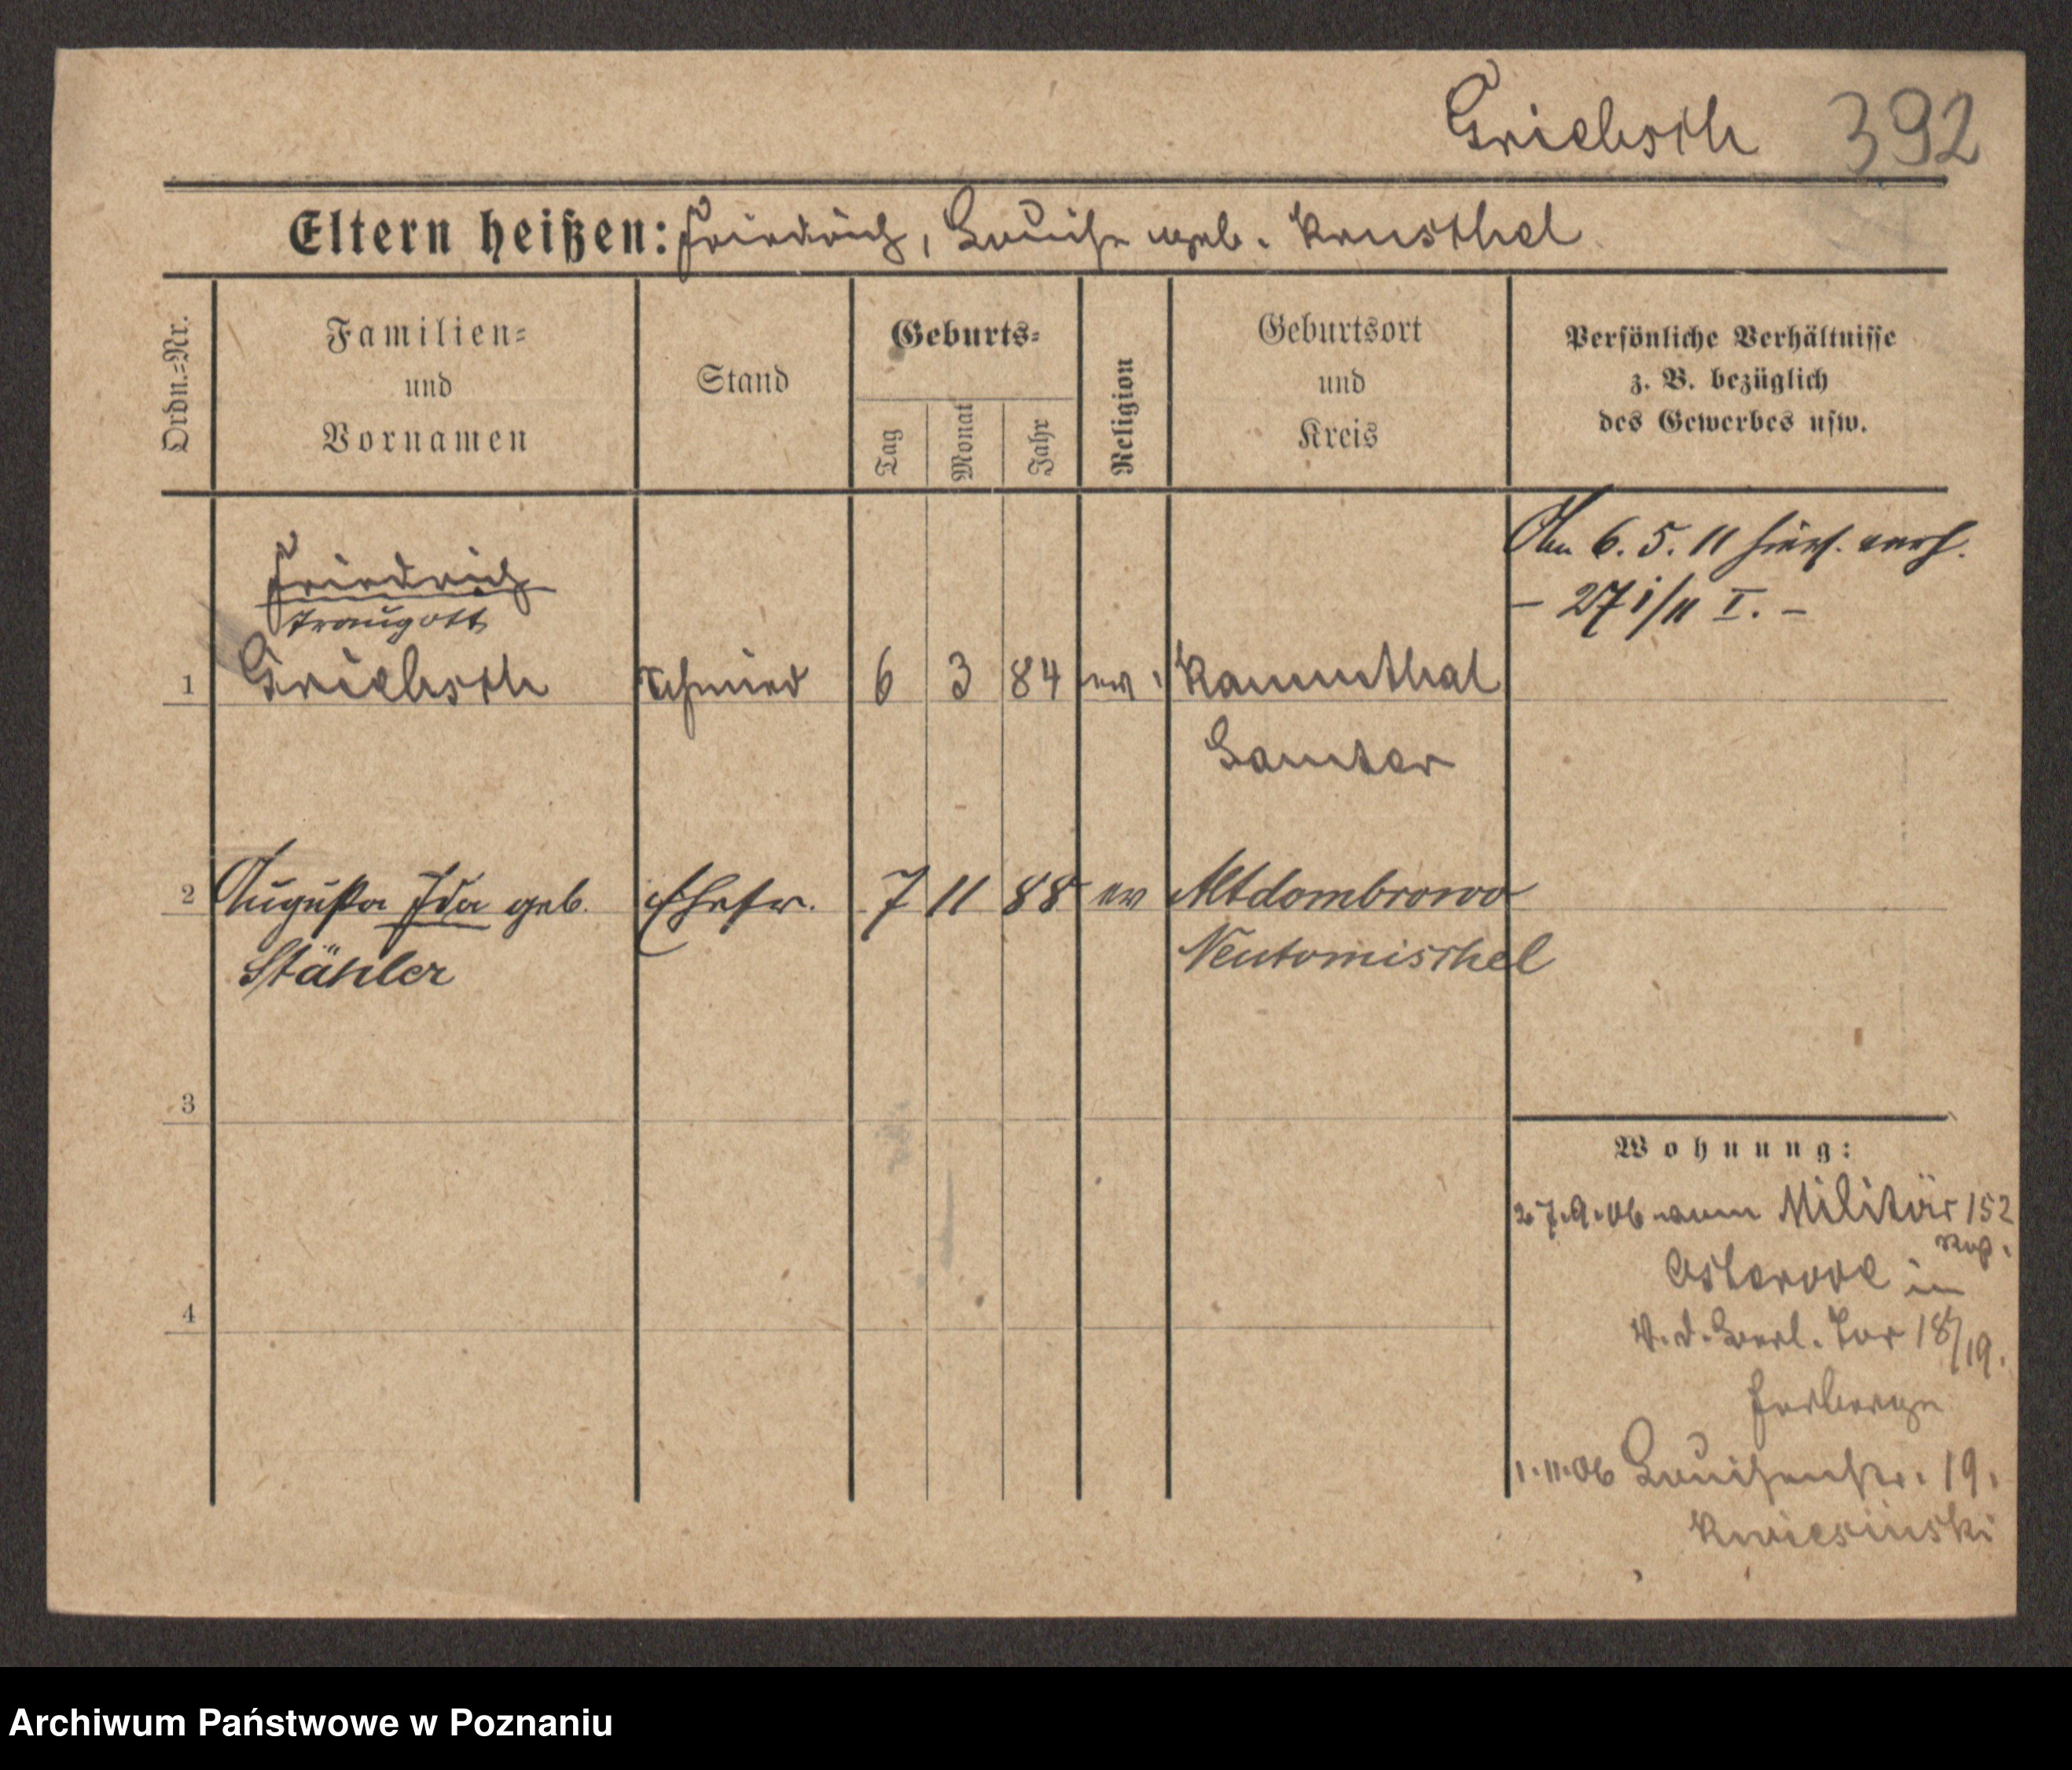 Griebsch 392
Eltern heißen: Friedrich, Louise geb. Krusthel
Ordn.-Nr.
Familien-
und
Vornamen
Stand
Geburts-
Tag
Monat
Jahr
Religion
Geburtsort
und
Kreis
Persönliche Verhältnisse
z. B. bezüglich
des Gewerbes usw.
Am 6. 5. 11 hiers. verh.
Friedrich
Traugott
1 Griebsch Schmied 6 3 84 ev. Kammthal
Samter
2 Augusta Ida geb. Ehefr. 7 11 88 ev Altdombrowo
Stähler Neutomischel
3
4
Wohnung:
27.9.06 vom Militär 152
Osterode in
V. d. Berl. Tor 18/19.
Herberge
1.11.06 Louisenstr. 19.
Kwiesinski
Archiwum Państwowe w Poznaniu